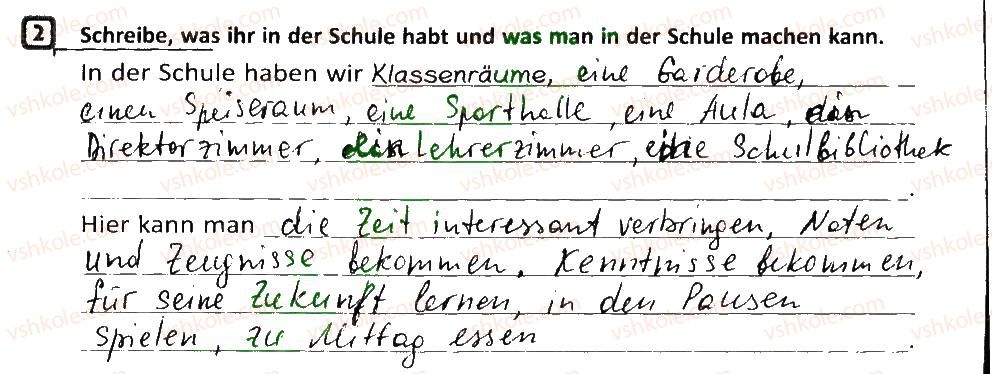 2 Schreibe, was ihr in der Schule habt und was man in der Schule machen kann.
In der Schule haben wir Klassenräume, eine Garderobe,
einen Speiseraum, eine Sporthalle, eine Aula, ein
Direktorzimmer, ein Lehrerzimmer, eine Schulbibliothek
.
Hier kann man die Zeit interessant verbringen, Noten
und Zeugnisse bekommen, Kenntnisse bekommen,
für seine Zukunft lernen, in den Pausen
spielen, zu Mittag essen.